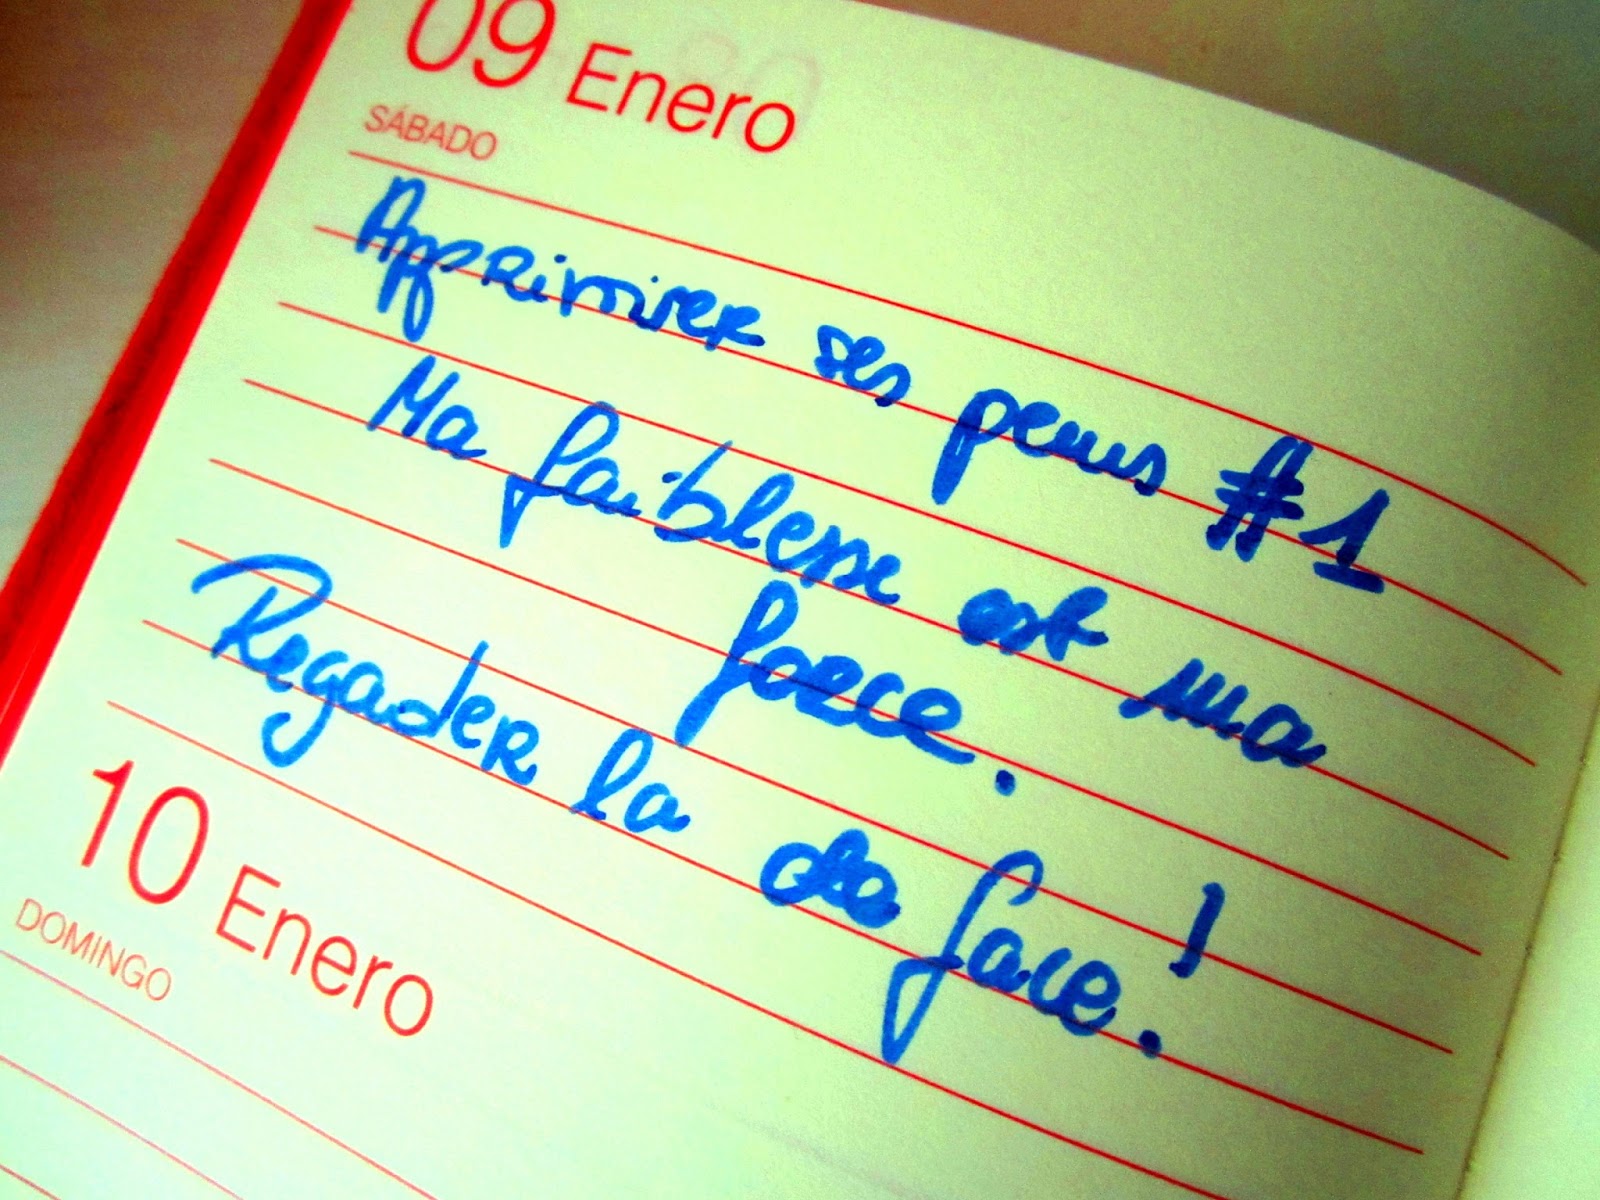 09 Enero
SÁBADO
Apprivoiser ses peurs #1
Ma faiblesse est ma
force.
Regarder la de face!
10 Enero
DOMINGO